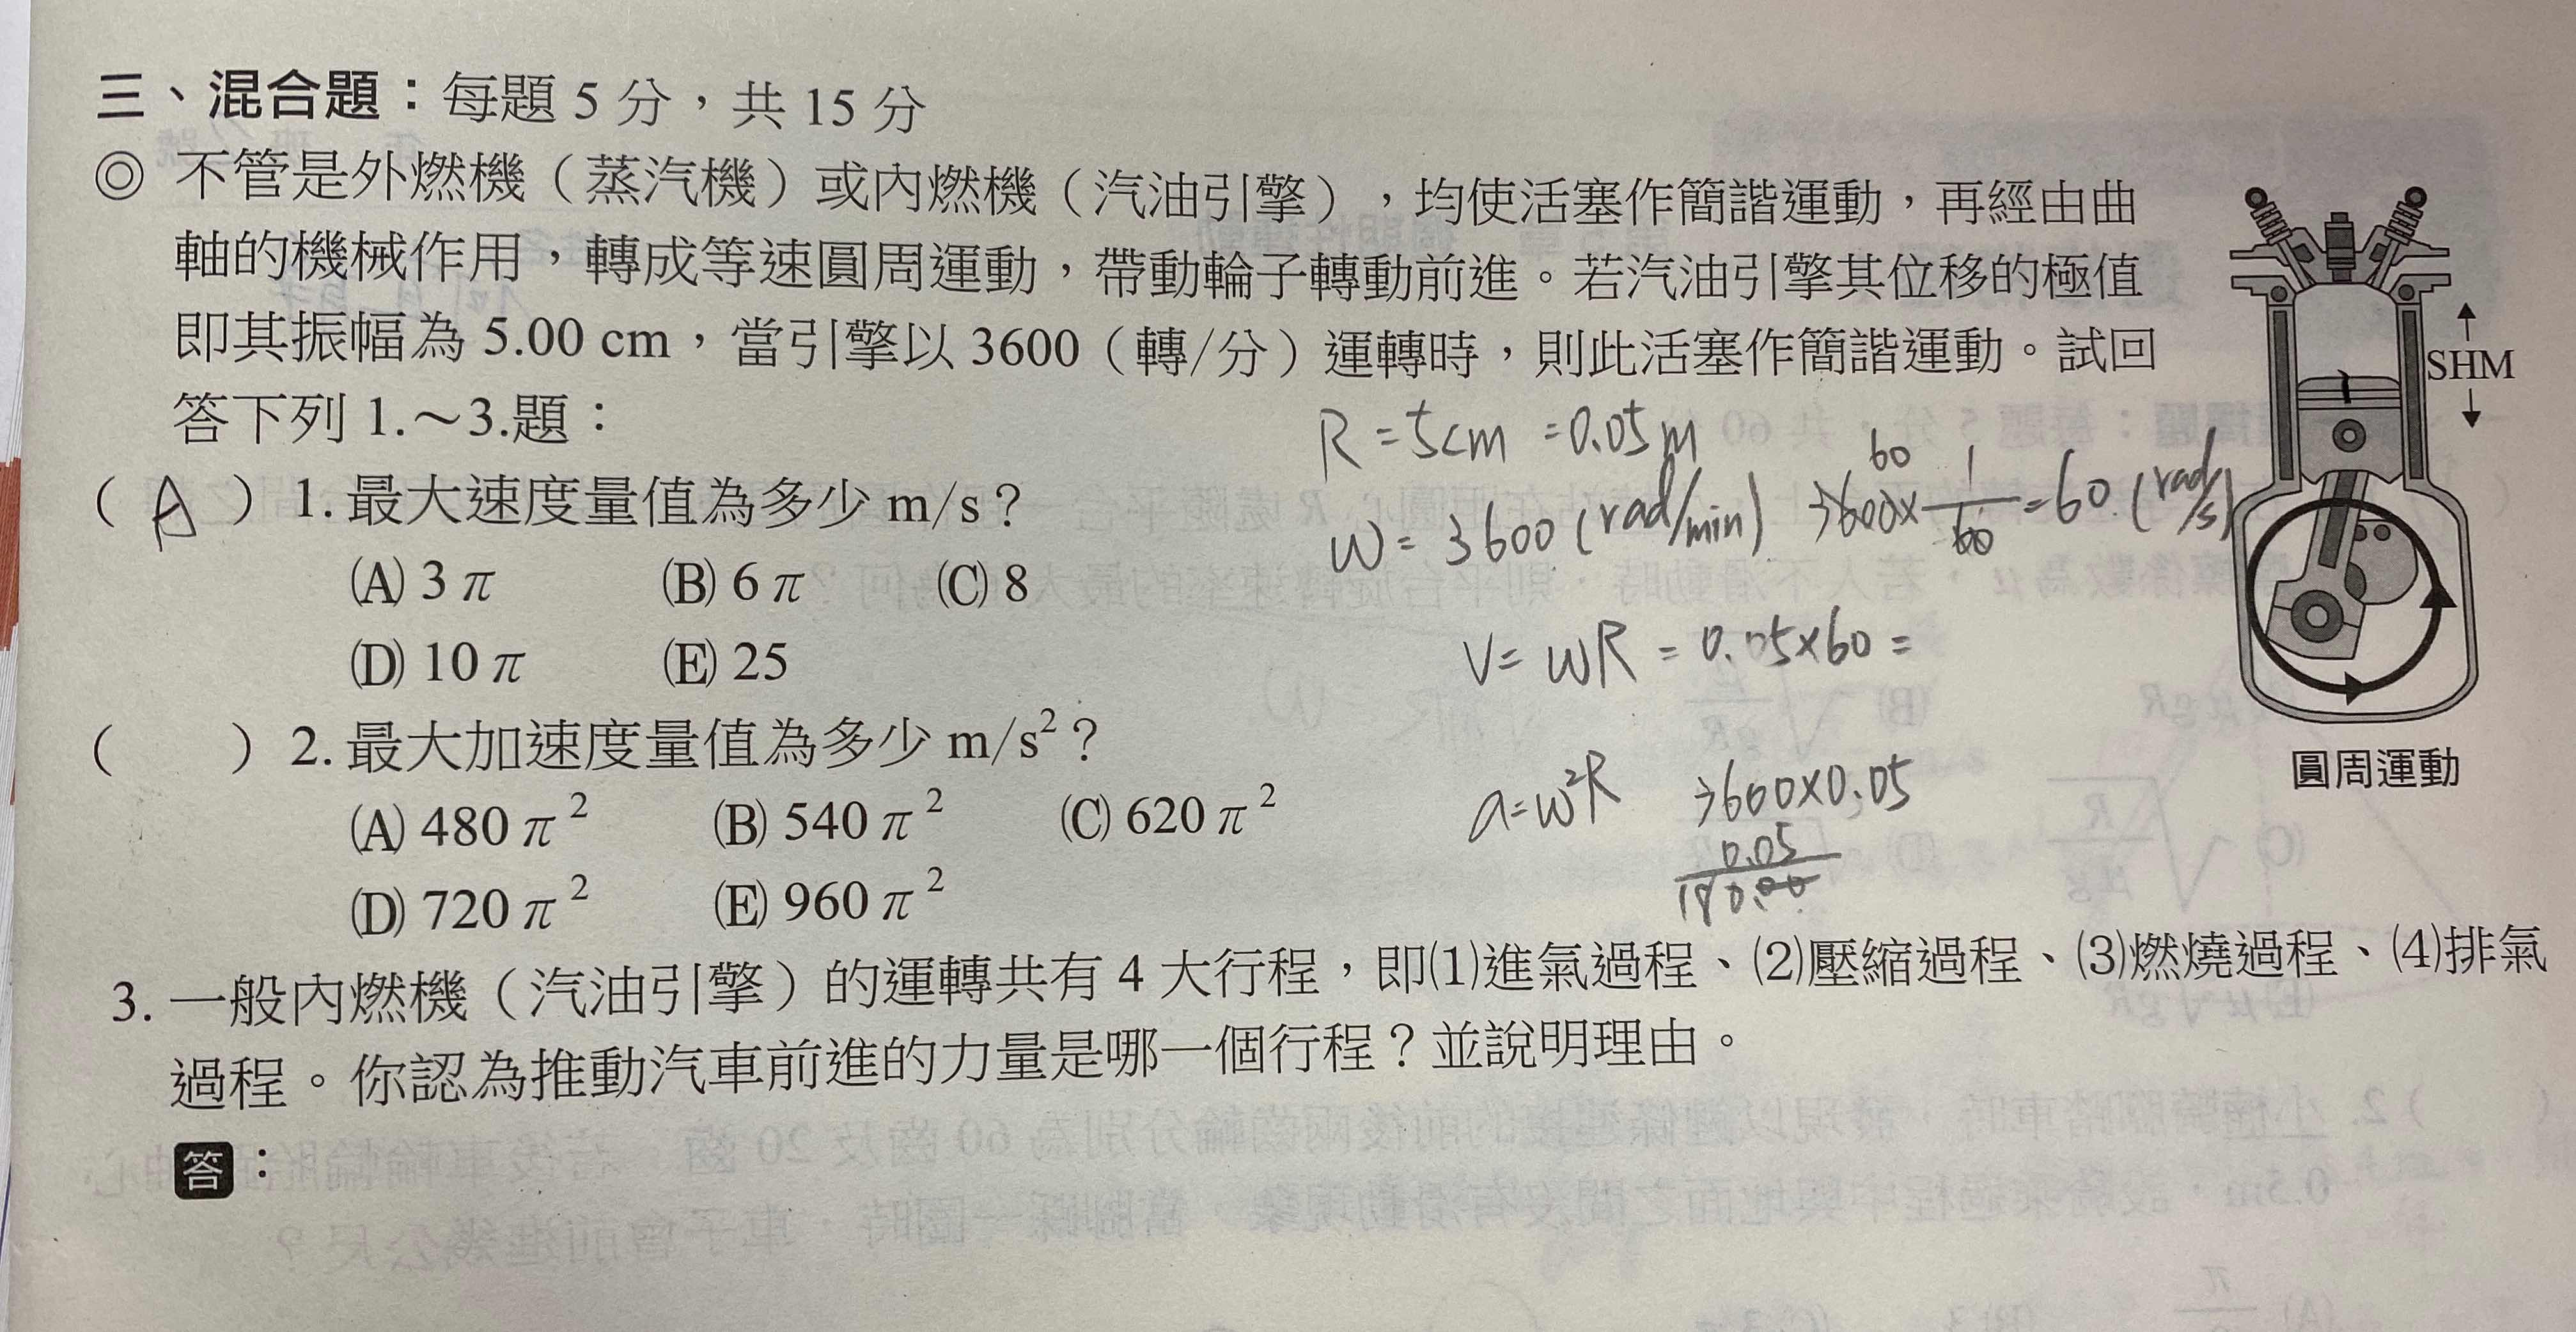 三、混合題：每題 5 分，共 15 分
◎ 不管是外燃機（蒸汽機）或內燃機（汽油引擎），均使活塞作簡諧運動，再經由曲
軸的機械作用，轉成等速圓周運動，帶動輪子轉動前進。若汽油引擎其位移的極值
即其振幅為 5.00 cm，當引擎以 3600（轉/分）運轉時，則此活塞作簡諧運動。試回
答下列 1.～3.題：
SHM
圓周運動
R = 5cm = 0.05m
W = 3600 (rad/min) 3600 × 1/60 = 60 (rad/s)
60
( A ) 1. 最大速度量值為多少 m/s？
(A) 3π (B) 6π (C) 8
(D) 10π (E) 25
V = WR = 0.05×60 =
( ) 2. 最大加速度量值為多少 m/s²？
(A) 480π² (B) 540π² (C) 620π²
(D) 720π² (E) 960π²
a=w²R 3600×0.05
0.05
180.00
3. 一般內燃機（汽油引擎）的運轉共有 4 大行程，即(1)進氣過程、(2)壓縮過程、(3)燃燒過程、(4)排氣
過程。你認為推動汽車前進的力量是哪一個行程？並說明理由。
答：